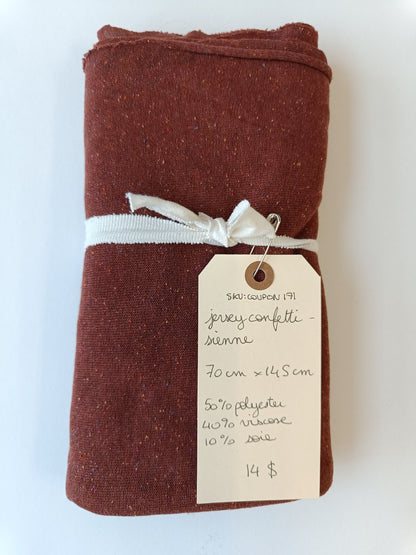 SKU:COUPON 171
jersey confetti -
sienne
70 cm x 145 cm
50% polyester
40% viscose
10% soie
14 $